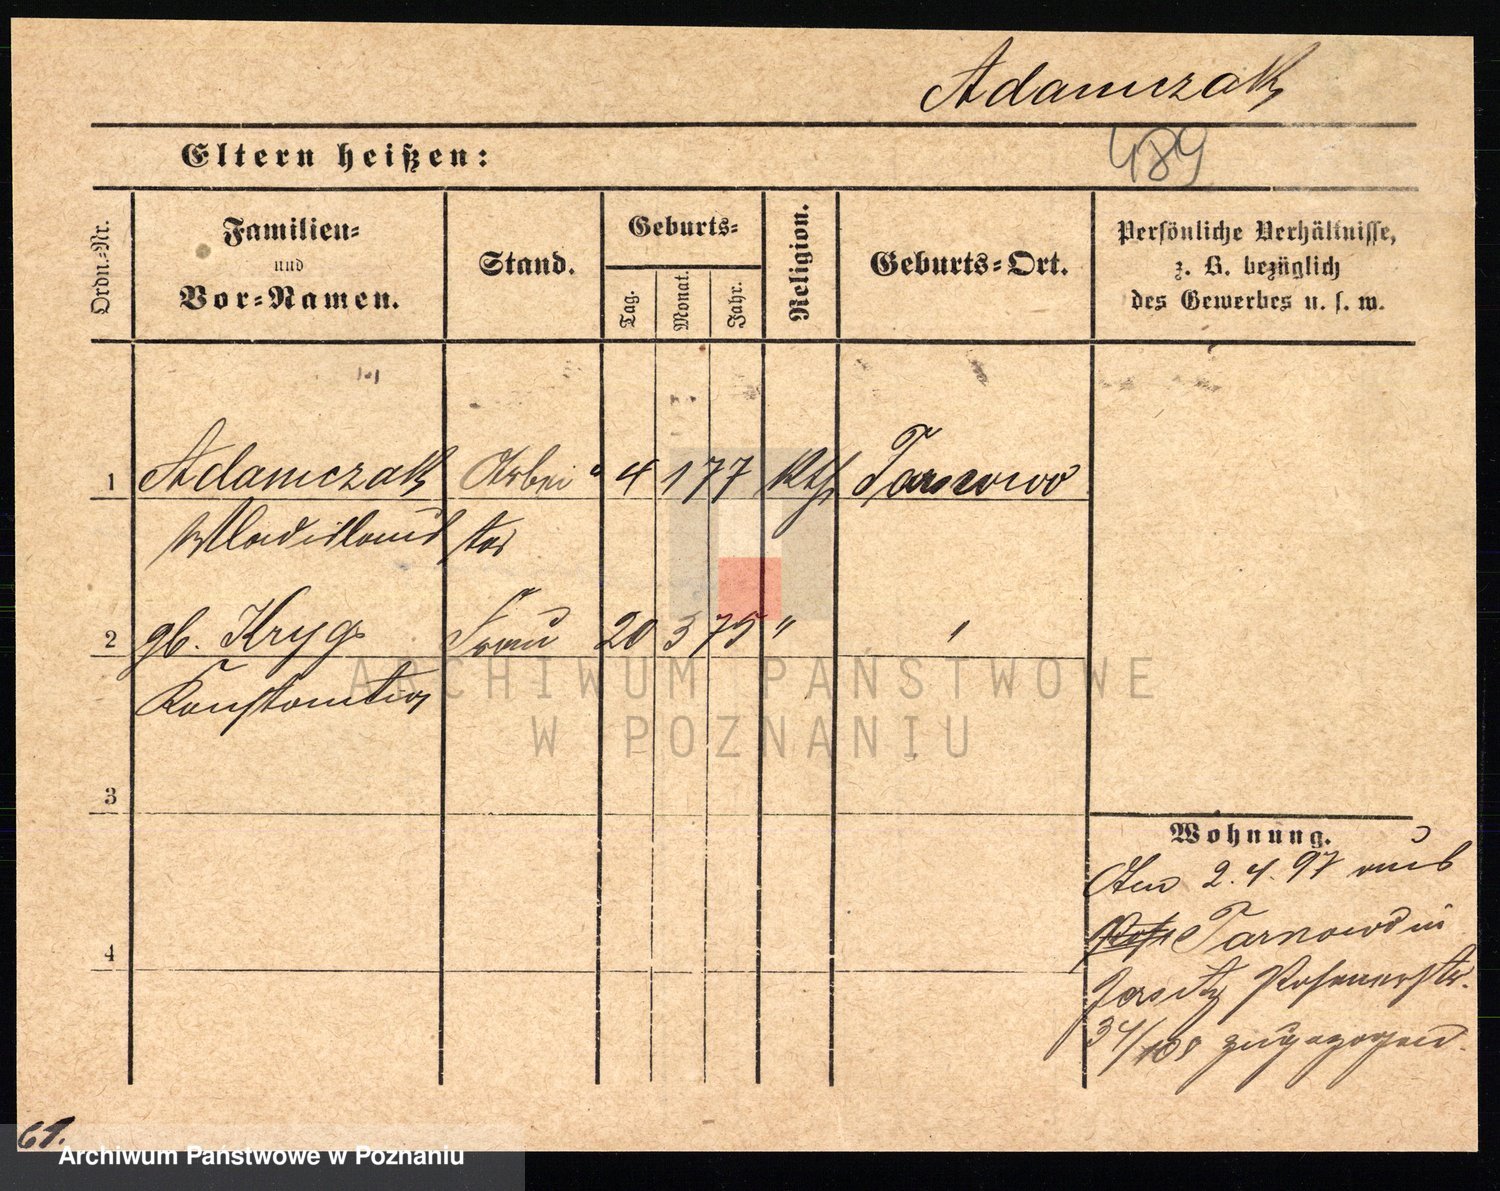 Adamczak
489
Eltern heißen:
Ordn.-Nr.
Familien-
und
Vor-Namen.
Stand.
Geburts-
Tag.
Monat.
Jahr.
Religion.
Geburts-Ort.
Persönliche Verhältnisse,
z. B. bezüglich
des Gewerbes u. s. w.
1 Adamczak Arbei- 4 1 77 Kth
Wladislaus ter
2 gb. Kryg Frau 20 3 75 " "
Konstantia
ARCHIWUM PAŃSTWOWE
W POZNANIU
3
Wohnung.
Am 2.4.97 aus
Tarnowo in
4
Jersitz Posenerstr.
34/108 zugezogen.
61.
Archiwum Państwowe w Poznaniu